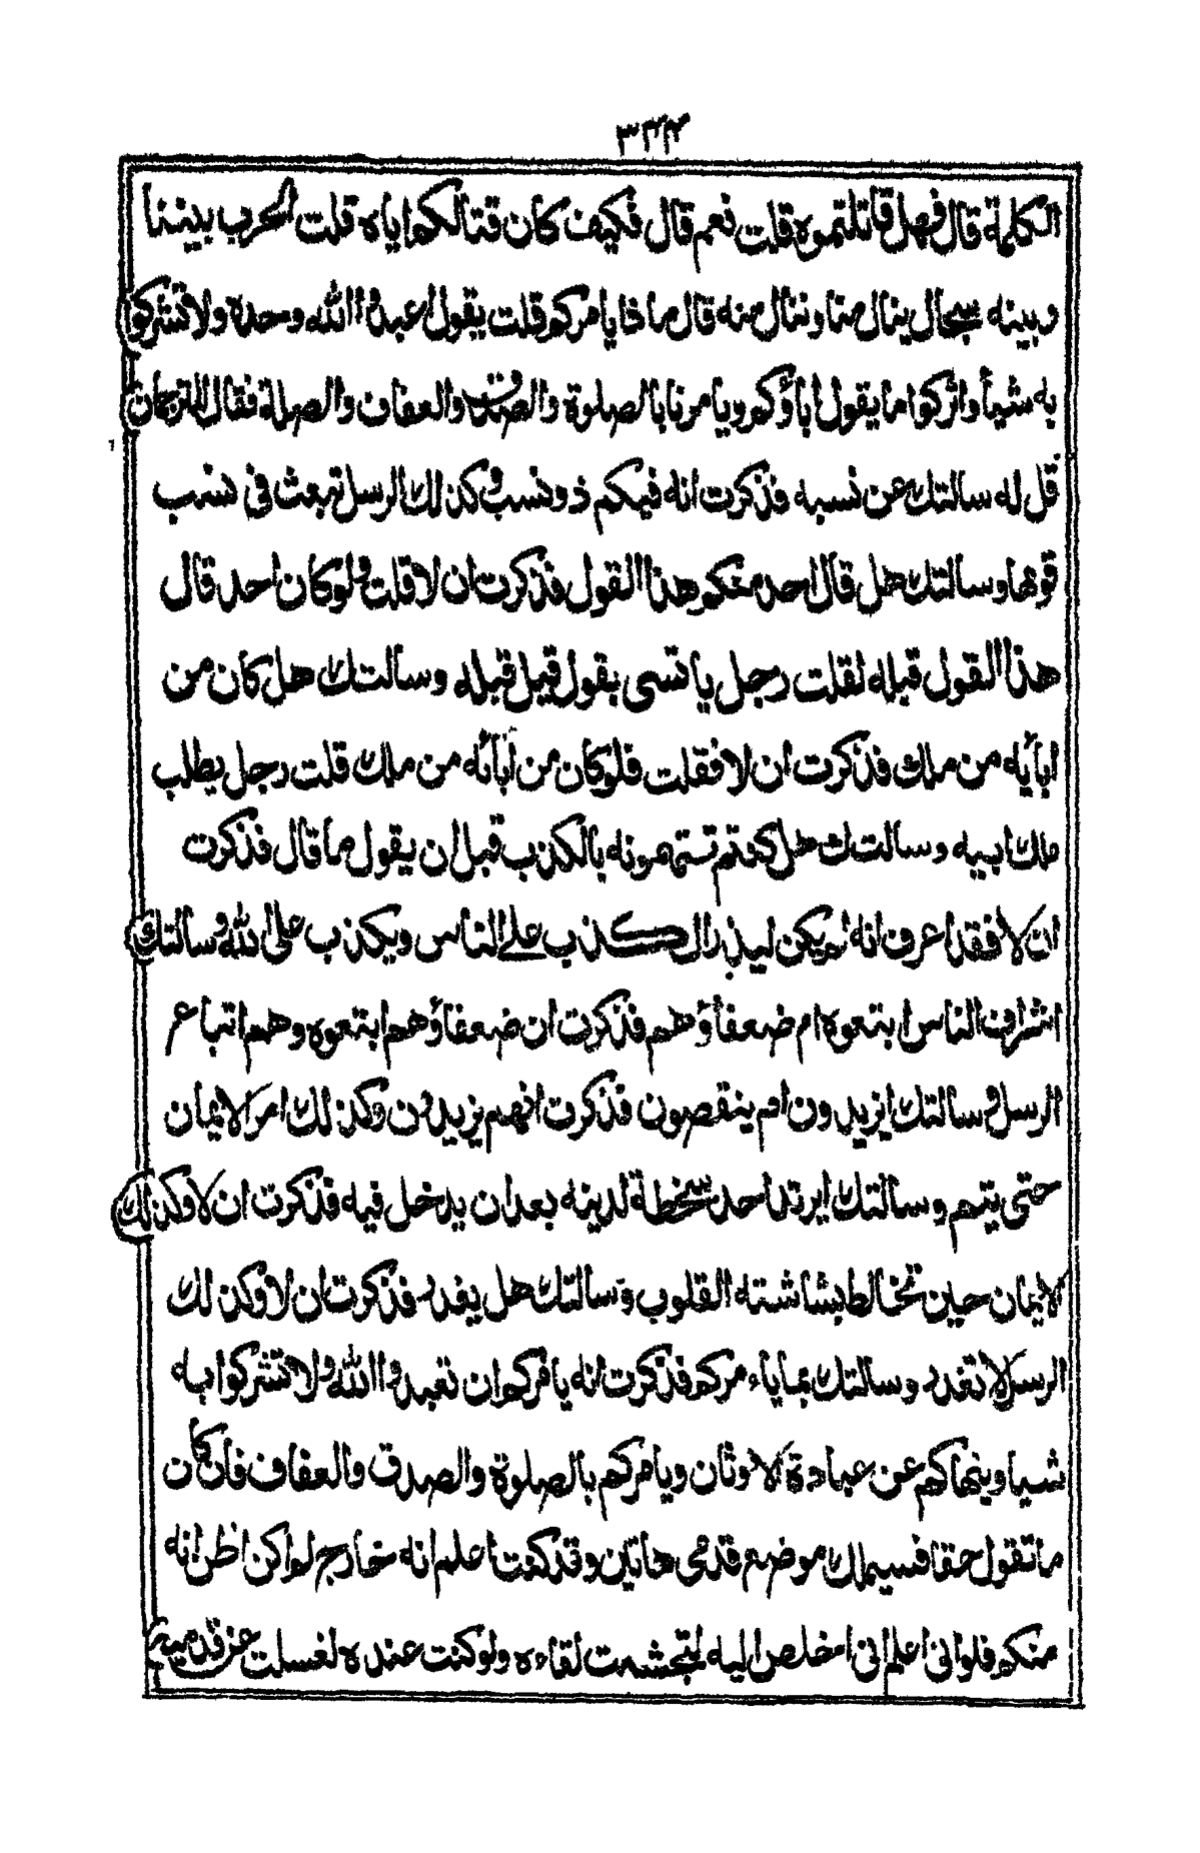 ٣٣٤
الكلمة قال فهل قاتلتموه قلت نعم قال فكيف كان قتالكم اياه قلت الحرب بيننا
وبينه سجال ينال منا وننال منه قال ماذا يامركم قلت يقول اعبدوا الله وحده ولا تشركوا
به شيأ واتركوا ما يقول اباؤكم ويامرنا بالصلوة والصدق والعفاف والصلة فقال للترجمان
قل له سالتك عن نسبه فذكرت انه فيكم ذو نسب وكذلك الرسل تبعث في نسب
قومها وسالتك هل قال احد منكم هذا القول فذكرت ان لا قلت لو كان احد قال
هذا القول قبله لقلت رجل ياتسى بقول قيل قبله وسالتك هل كان من
اباۓه من ملك فذكرت ان لا فقلت فلو كان من اباۓه من ملك قلت رجل يطلب
ملك ابيه وسالتك هل كنتم تتهمونه بالكذب قبل ان يقول ما قال فذكرت
ان لا فقد اعرف انه لم يكن ليذر الكذب على الناس ويكذب على الله وسالتك
اشراف الناس ابتعوه ام ضعفاؤهم فذكرت ان ضعفاؤهم ابتعوه وهم اتباع
الرسل وسالتك ايزيدون ام ينقصون فذكرت انهم يزيدون وكذلك امر الايمان
حتى يتم وسالتك ايرتد احد سخطة لدينه بعد ان يدخل فيه فذكرت ان لا وكذلك
الايمان حين تخالط بشاشته القلوب وسالتك هل يغدر فذكرت ان لا وكذلك
الرسل لا تغدر وسالتك بما ياءمركم فذكرت انه يامركم ان تعبدوا الله ولا تشركوا به
شيا وينهاكم عن عبادة الاوثان ويامركم بالصلوة والصدق والعفاف فان كان
ما تقول حقا فسيملك موضع قدمي هاتين وقد كنت اعلم انه خارج لم اكن اظن انه
منكم فلو انى اعلم انى اخلص اليه لتجشمت لقاءه ولو كنت عنده لغسلت عن قدميه